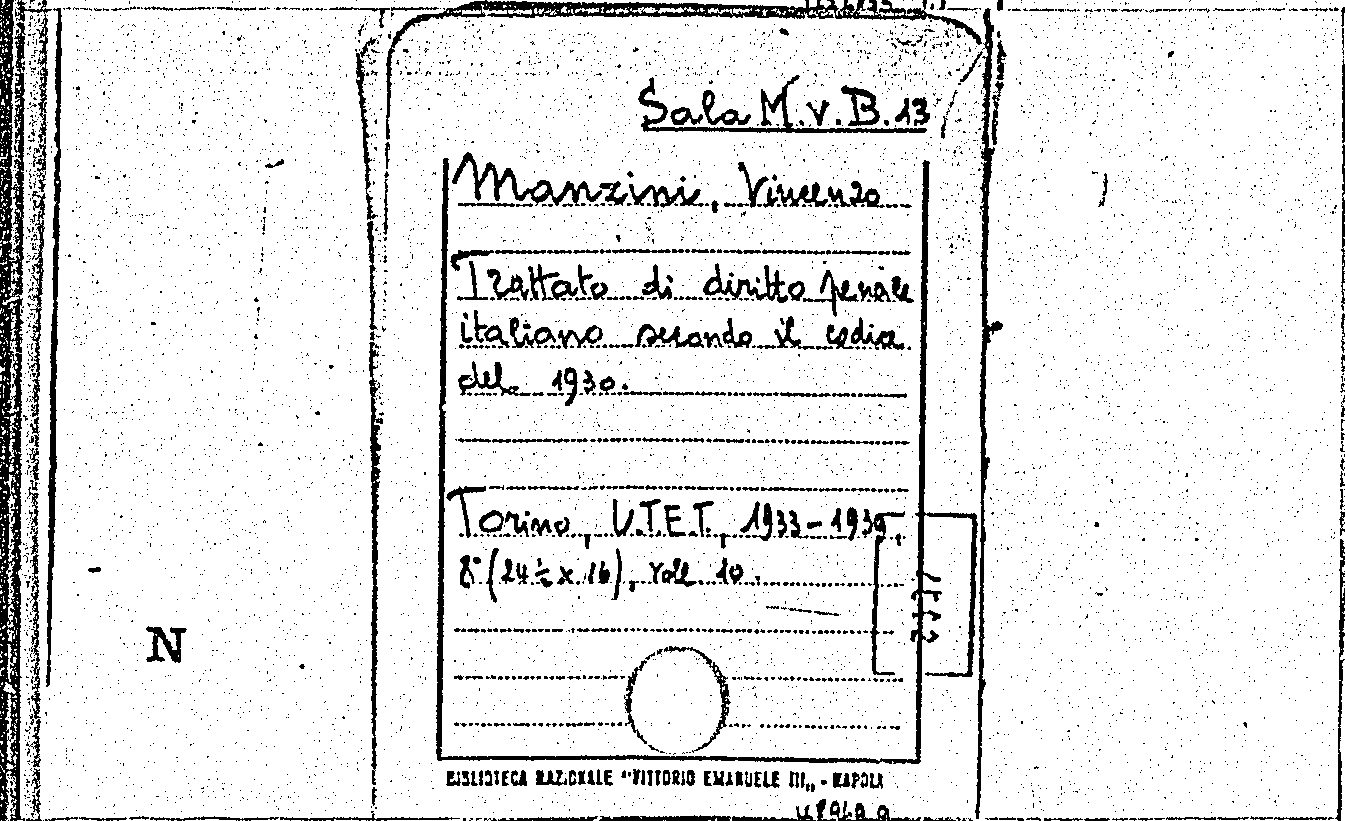 Sala M.V.B.13
Manzini, Vincenzo
Trattato di diritto penale
italiano secondo il codice
del 1930.
Torino, U.T.E.T., 1933-1939,
8° (24½ x 16), voll. 10.
N
BIBLIOTECA NAZIONALE "VITTORIO EMANUELE III„ - NAPOLI